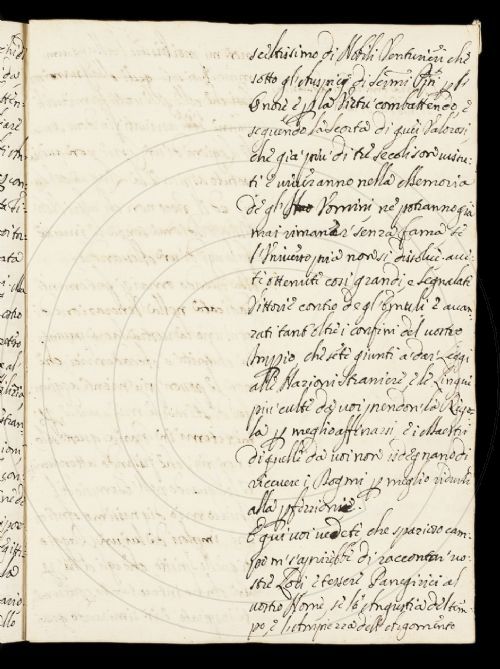 sceltissimo di Nobili Venturieri che
sotto gli Auspicij di Sermi Pnpi p l'
Onore e p la Virtù combattendo, e
seguendo la scorta di quei Valorosi
che già più di tre secoli sono vissu-
ti e viveranno nella Memoria
degli Uomini ne potranno già
mai rimaner senza fama se
l'Universo pria non si dissolve avē-
ti ottenute così grandi, e segnalati
Vittorie contro degl'Emuli e avan-
zati tant'oltre i confini del vostro
Impio che sete giunti a dar Leggi
alle Nazioni straniere, e le Lingue
più culte da voi prendon la Rego-
la p meglio affinarsi e i Maestri
di quelli da voi non isdegnano di
ricevere i Dogmi p meglio ridurli
alla pfezzione.
E qui voi vedete che spazioso cam-
po m's'aprirebbe di raccontar vo-
stre Lodi e tessere Panegirici al
vostro Nome, se l'Angustia del tem-
po, e l'Ampiezza dell'Argomento